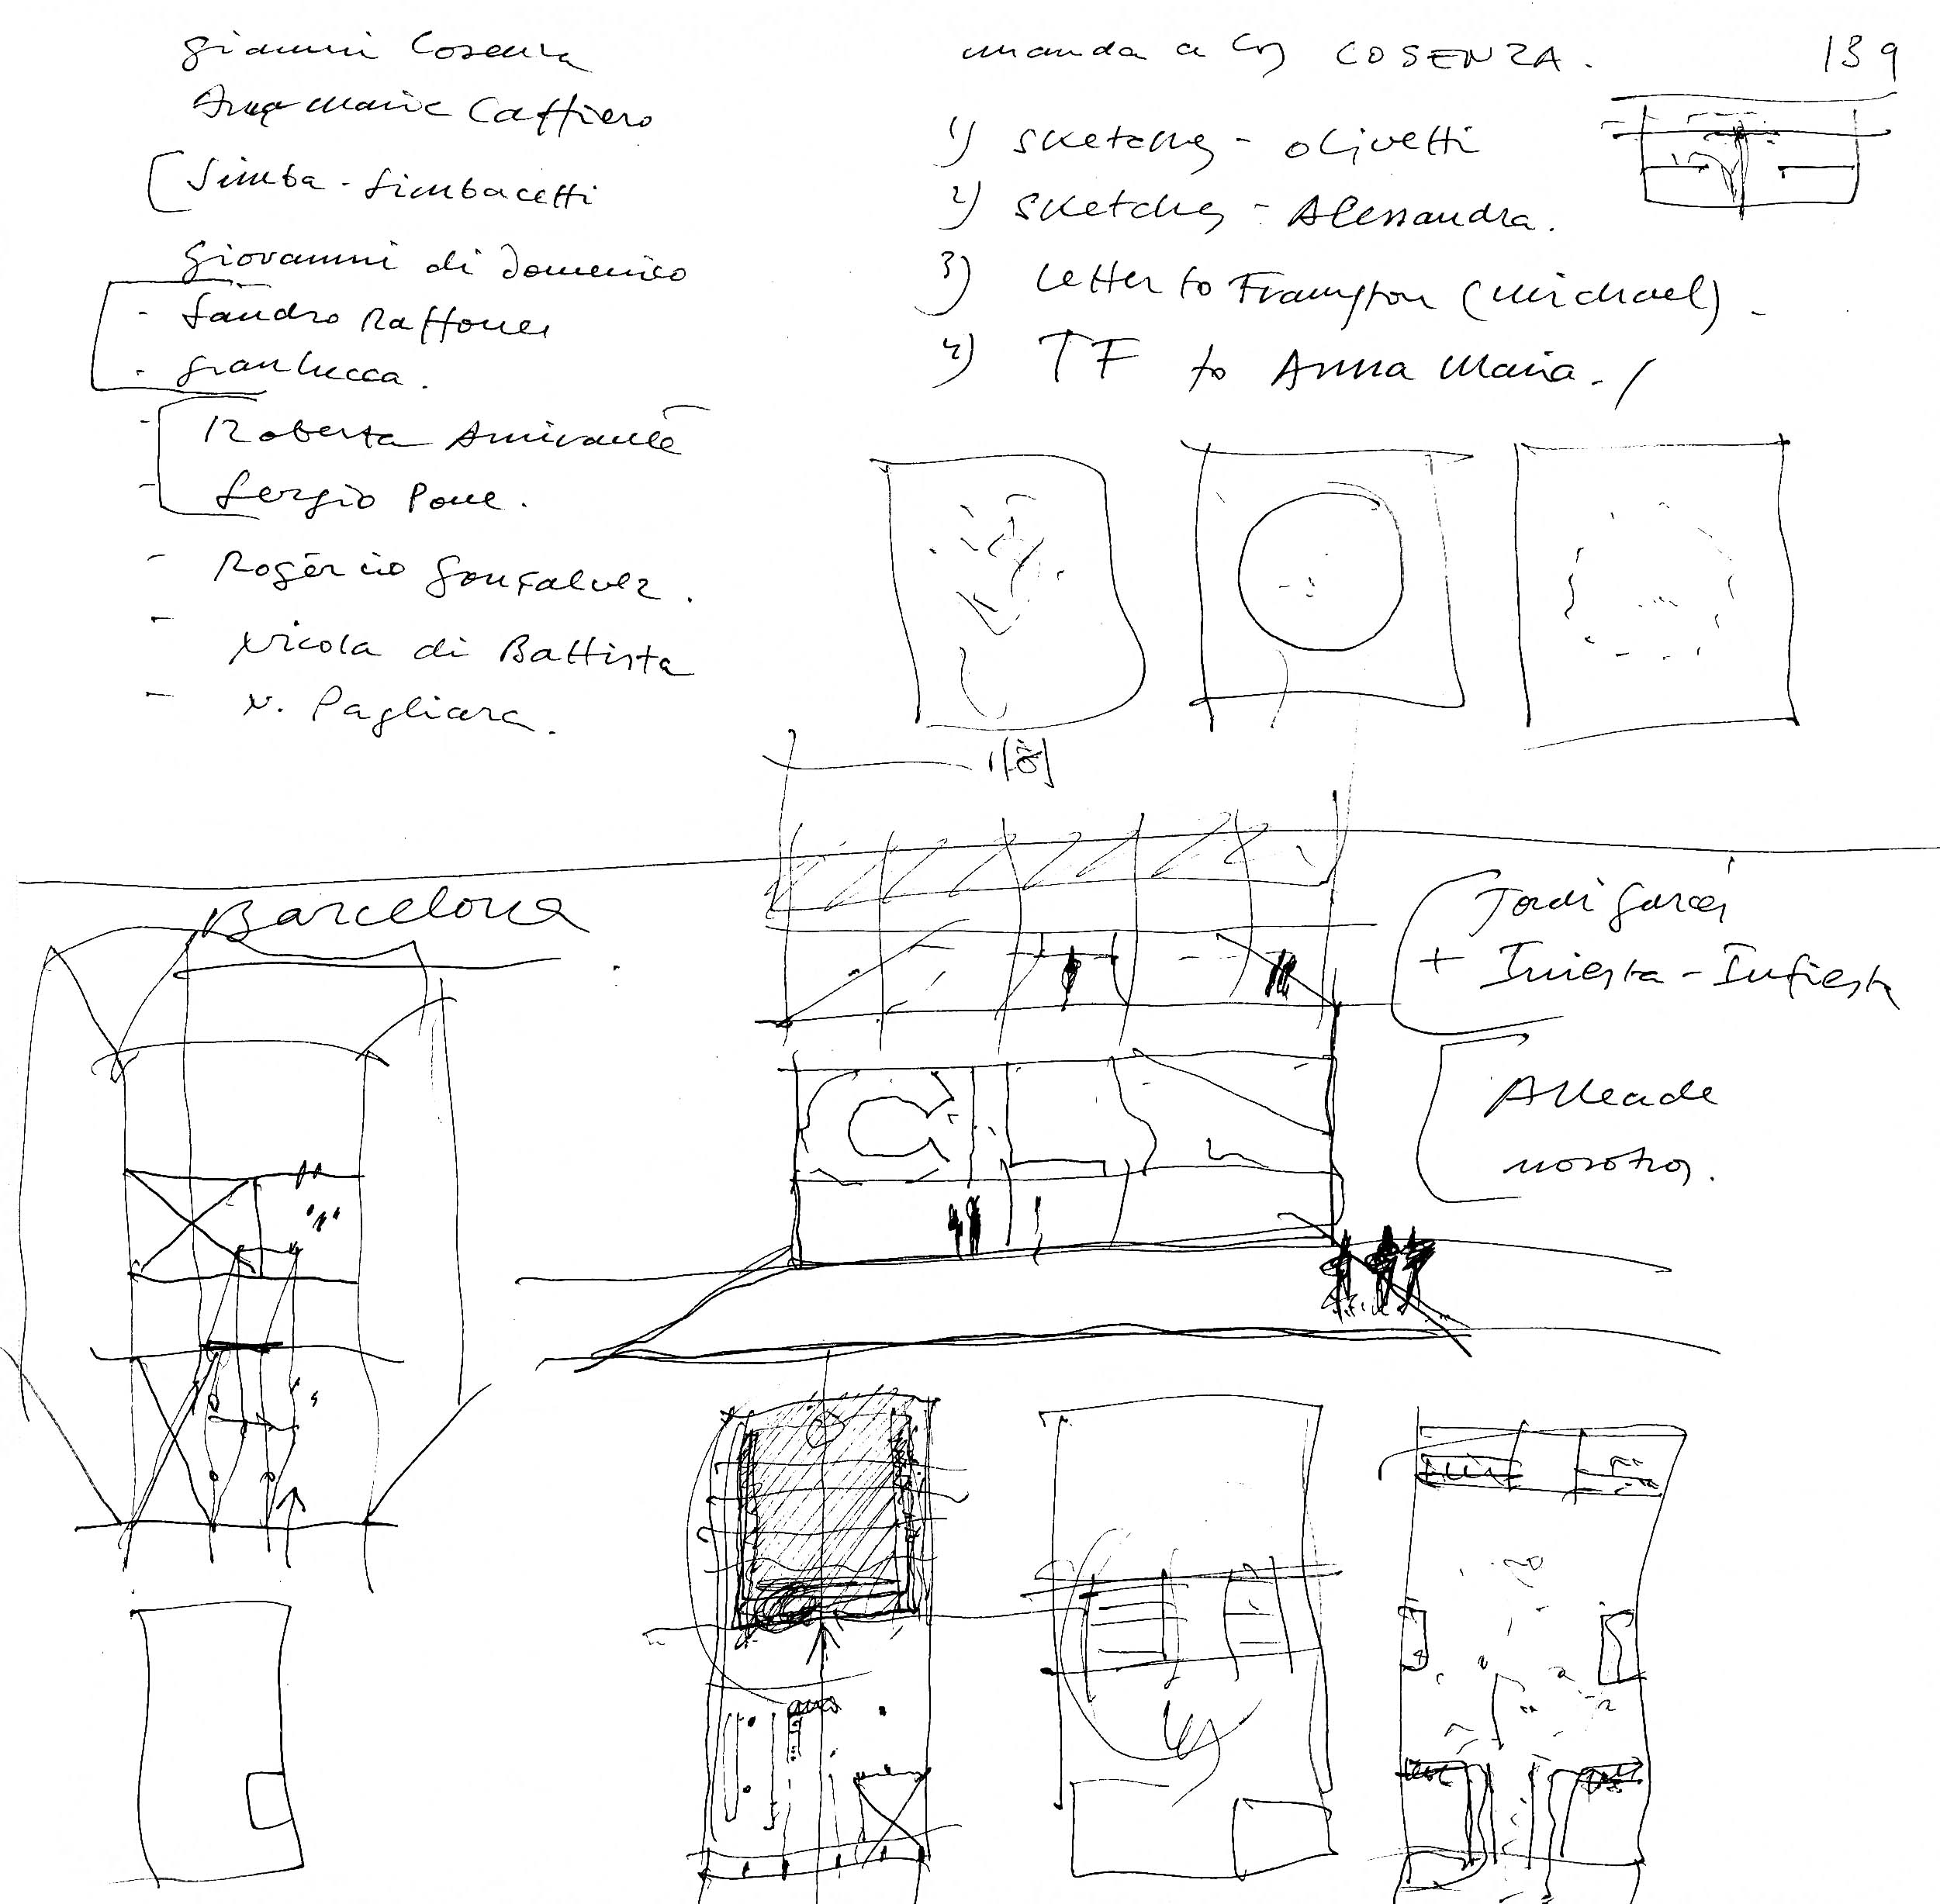 gianni Cosenza
Anna Maria Caffiero
Simba - Simbacetti
giovanni di Domenico
- Sandro Raffone
- gianlucca.
- Roberta Amirante
- Sergio Pone.
- Rogério gonçalvez.
- Nicola di Battista
- N. Pagliara.
manda a COSENZA.
139
1) sketches - olivetti
2) sketches - Alessandra.
3) Letter to Frampton (Michael).
4) TF to Anna Maria.
Barcelona
Jordi garcés
+ Iniesta - Infiesta
Alleade
nosotros.